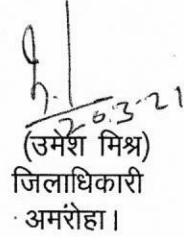 20.3-21
(उमेश मिश्र)
जिलाधिकारी
अमरोहा।